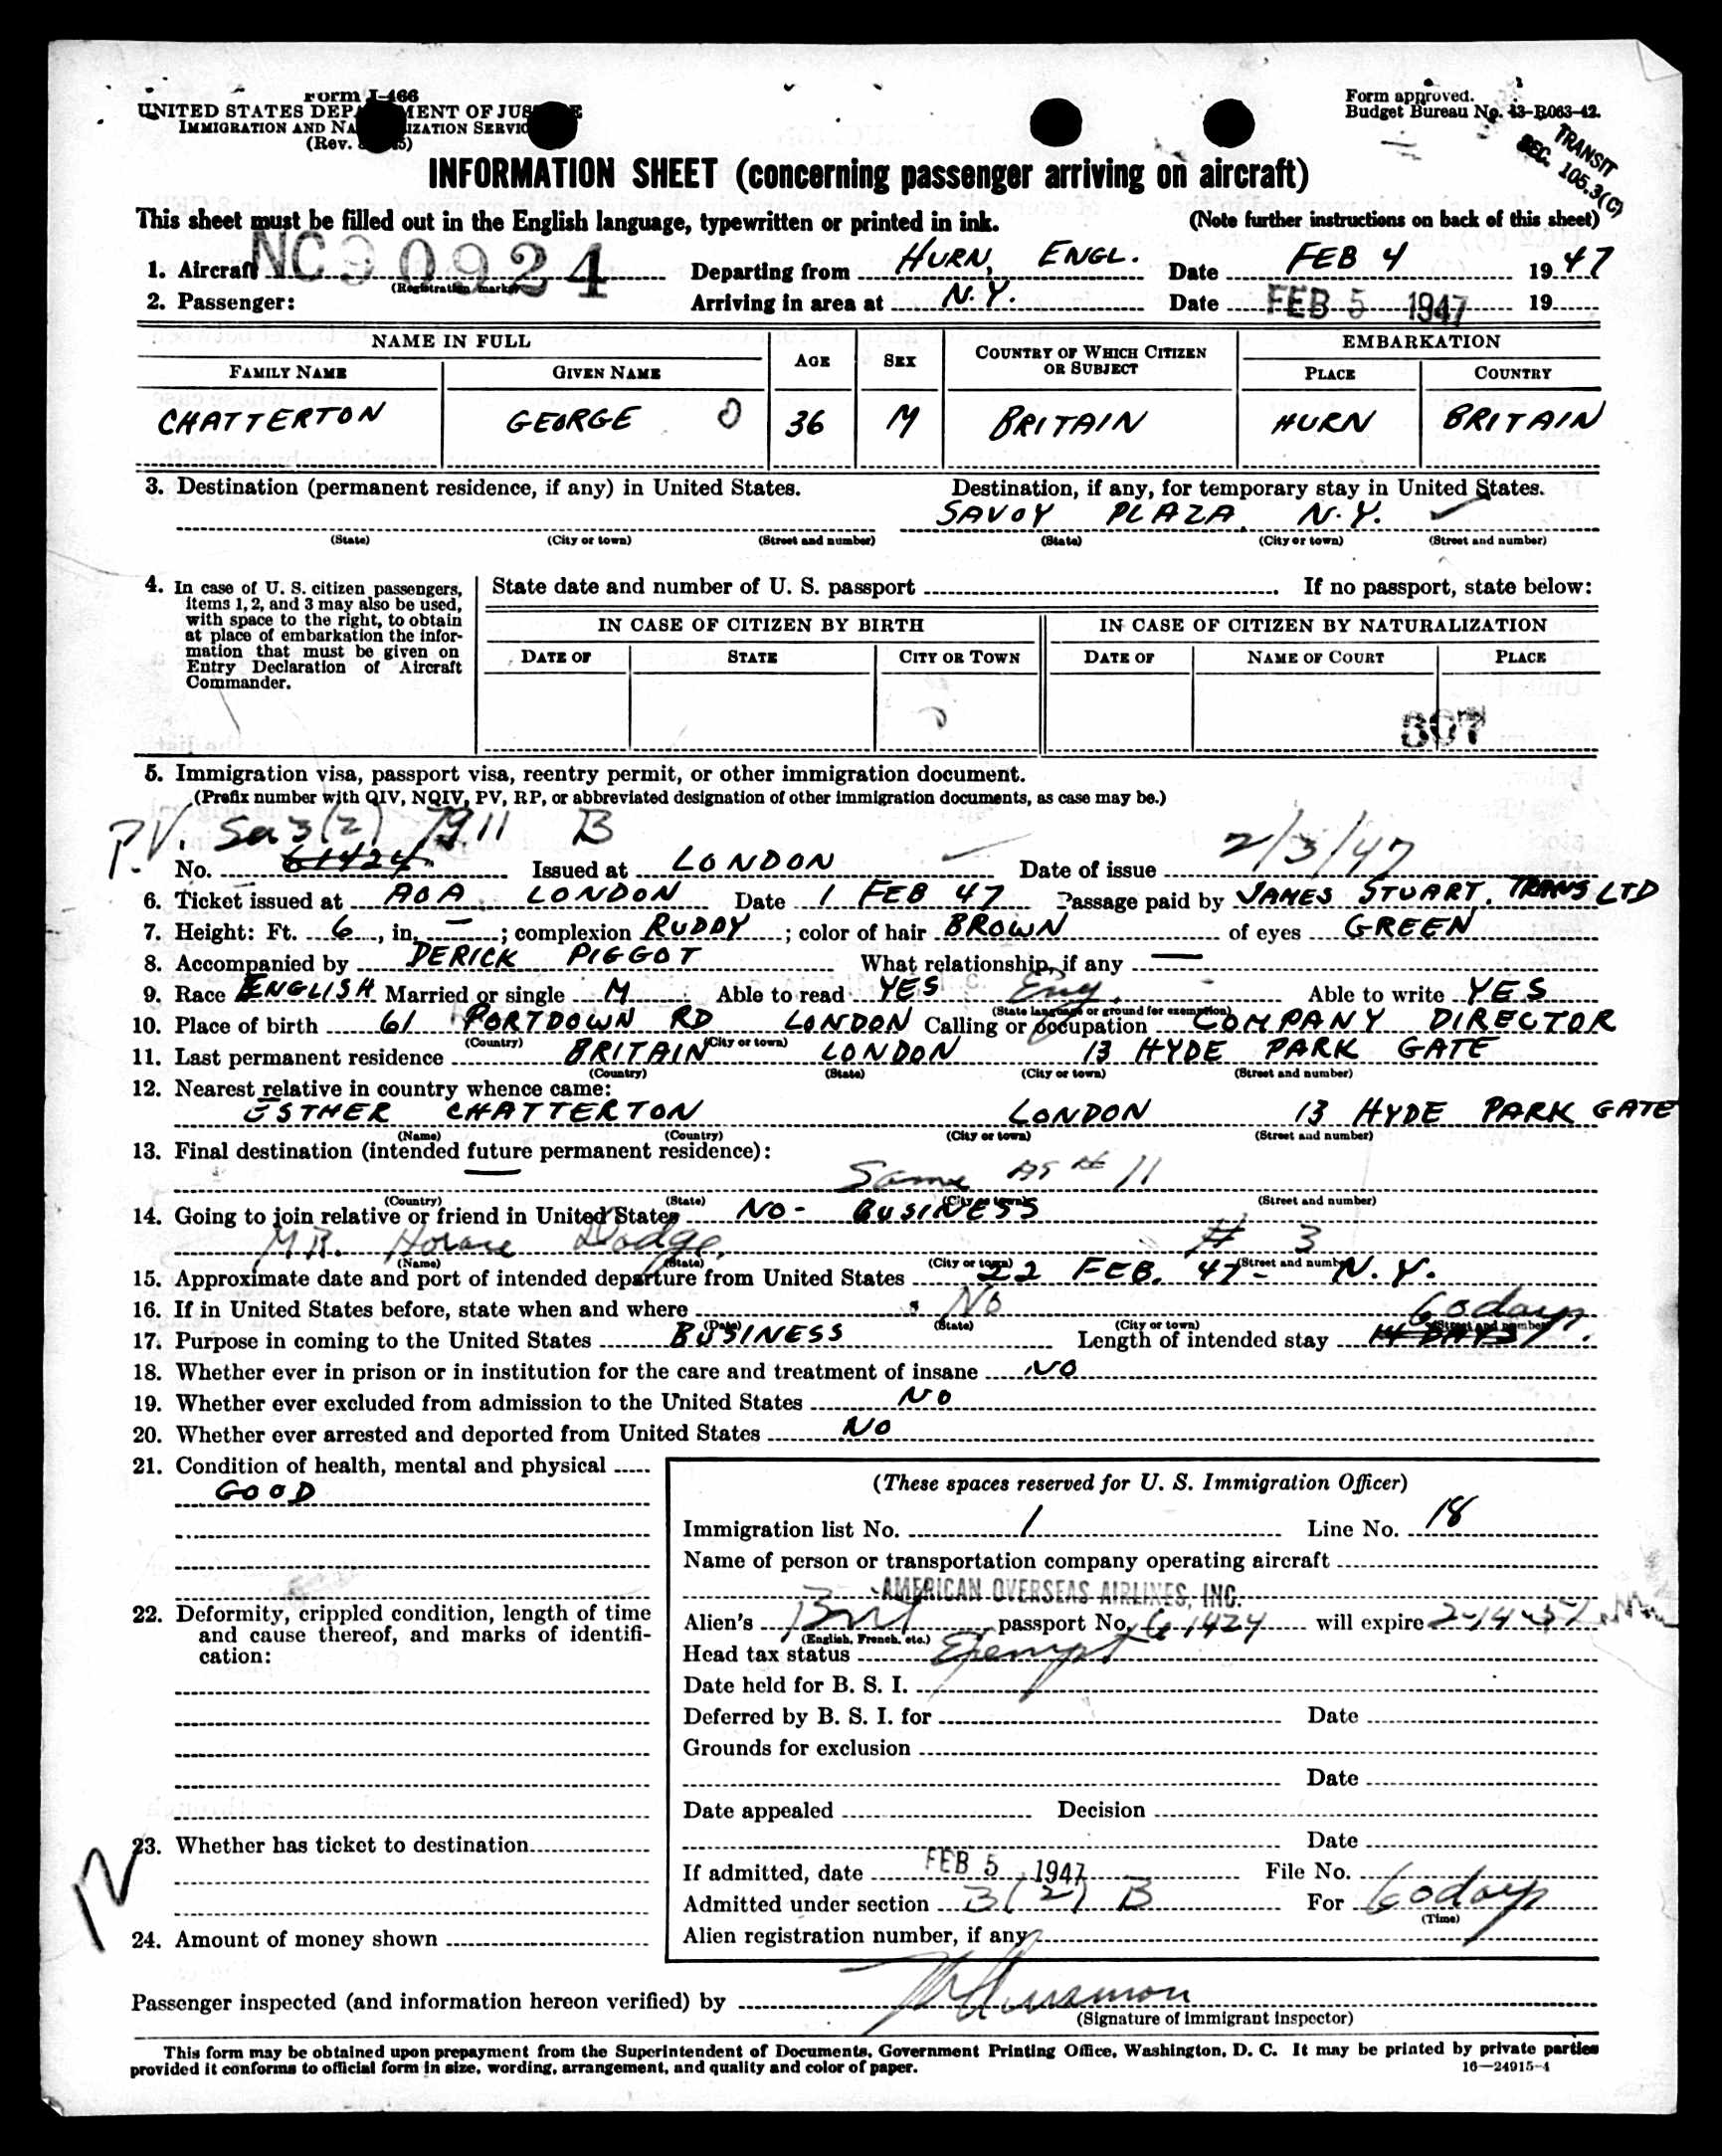 Form I-466
UNITED STATES DEPARTMENT OF JUSTICE
IMMIGRATION AND NATURALIZATION SERVICE
(Rev.
Form approved.
Budget Bureau No. 43-R063-42.
TRANSIT
SEC. 105.3(C)
INFORMATION SHEET (concerning passenger arriving on aircraft)
This sheet must be filled out in the English language, typewritten or printed in ink. (Note further instructions on back of this sheet)
1. Aircraft NC90924 Departing from HURN, ENGL. Date FEB 4 1947
(Registration marks)
2. Passenger: Arriving in area at N.Y. Date FEB 5 1947 19
NAME IN FULL AGE SEX COUNTRY OF WHICH CITIZEN OR SUBJECT EMBARKATION
FAMILY NAME GIVEN NAME PLACE COUNTRY
CHATTERTON GEORGE O 36 M BRITAIN HURN BRITAIN
3. Destination (permanent residence, if any) in United States. Destination, if any, for temporary stay in United States.
SAVOY PLAZA N.Y.
(State) (City or town) (Street and number) (State) (City or town) (Street and number)
4. In case of U. S. citizen passengers, items 1, 2, and 3 may also be used, with space to the right, to obtain at place of embarkation the information that must be given on Entry Declaration of Aircraft Commander.
State date and number of U. S. passport If no passport, state below:
IN CASE OF CITIZEN BY BIRTH IN CASE OF CITIZEN BY NATURALIZATION
DATE OF STATE CITY OR TOWN DATE OF NAME OF COURT PLACE
307
5. Immigration visa, passport visa, reentry permit, or other immigration document.
(Prefix number with QIV, NQIV, PV, RP, or abbreviated designation of other immigration documents, as case may be.)
P.V. Sec 3(2) 7911 B
No. 61424 Issued at LONDON Date of issue 2/3/47
6. Ticket issued at AOA LONDON Date 1 FEB 47 Passage paid by JAMES STUART. TRANS LTD
7. Height: Ft. 6, in. —; complexion RUDDY; color of hair BROWN of eyes GREEN
8. Accompanied by DERICK PIGGOT What relationship, if any —
9. Race ENGLISH Married or single M Able to read YES Eng. Able to write YES
(State language or ground for exemption)
10. Place of birth 61 PORTDOWN RD LONDON Calling or occupation COMPANY DIRECTOR
(Country) (City or town)
11. Last permanent residence BRITAIN LONDON 13 HYDE PARK GATE
(Country) (State) (City or town) (Street and number)
12. Nearest relative in country whence came:
ESTHER CHATTERTON LONDON 13 HYDE PARK GATE
(Name) (Country) (City or town) (Street and number)
13. Final destination (intended future permanent residence):
— Same as # 11
(Country) (State) (City or town) (Street and number)
14. Going to join relative or friend in United States NO - BUSINESS
MR. Horace Dodge, # 3
(Name) (State) (City or town) (Street and number)
15. Approximate date and port of intended departure from United States 22 FEB. 47- N.Y.
16. If in United States before, state when and where No
(Date) (State) (City or town) (Street and number)
60 days
17. Purpose in coming to the United States BUSINESS Length of intended stay 14 DAYS
18. Whether ever in prison or in institution for the care and treatment of insane NO
19. Whether ever excluded from admission to the United States NO
20. Whether ever arrested and deported from United States NO
21. Condition of health, mental and physical
GOOD
22. Deformity, crippled condition, length of time and cause thereof, and marks of identification:
23. Whether has ticket to destination
24. Amount of money shown
(These spaces reserved for U. S. Immigration Officer)
Immigration list No. 1 Line No. 18
Name of person or transportation company operating aircraft
AMERICAN OVERSEAS AIRLINES, INC.
Alien's Brit passport No. 61424 will expire 2-14-
(English, French, etc.)
Head tax status Exempt
Date held for B. S. I.
Deferred by B. S. I. for Date
Grounds for exclusion
Date
Date appealed Decision
Date
If admitted, date FEB 5 1947 File No.
Admitted under section 3(2) B For 60 days
(Time)
Alien registration number, if any
Passenger inspected (and information hereon verified) by
(Signature of immigrant inspector)
This form may be obtained upon prepayment from the Superintendent of Documents, Government Printing Office, Washington, D. C. It may be printed by private parties
provided it conforms to official form in size, wording, arrangement, and quality and color of paper. 16—24915-4